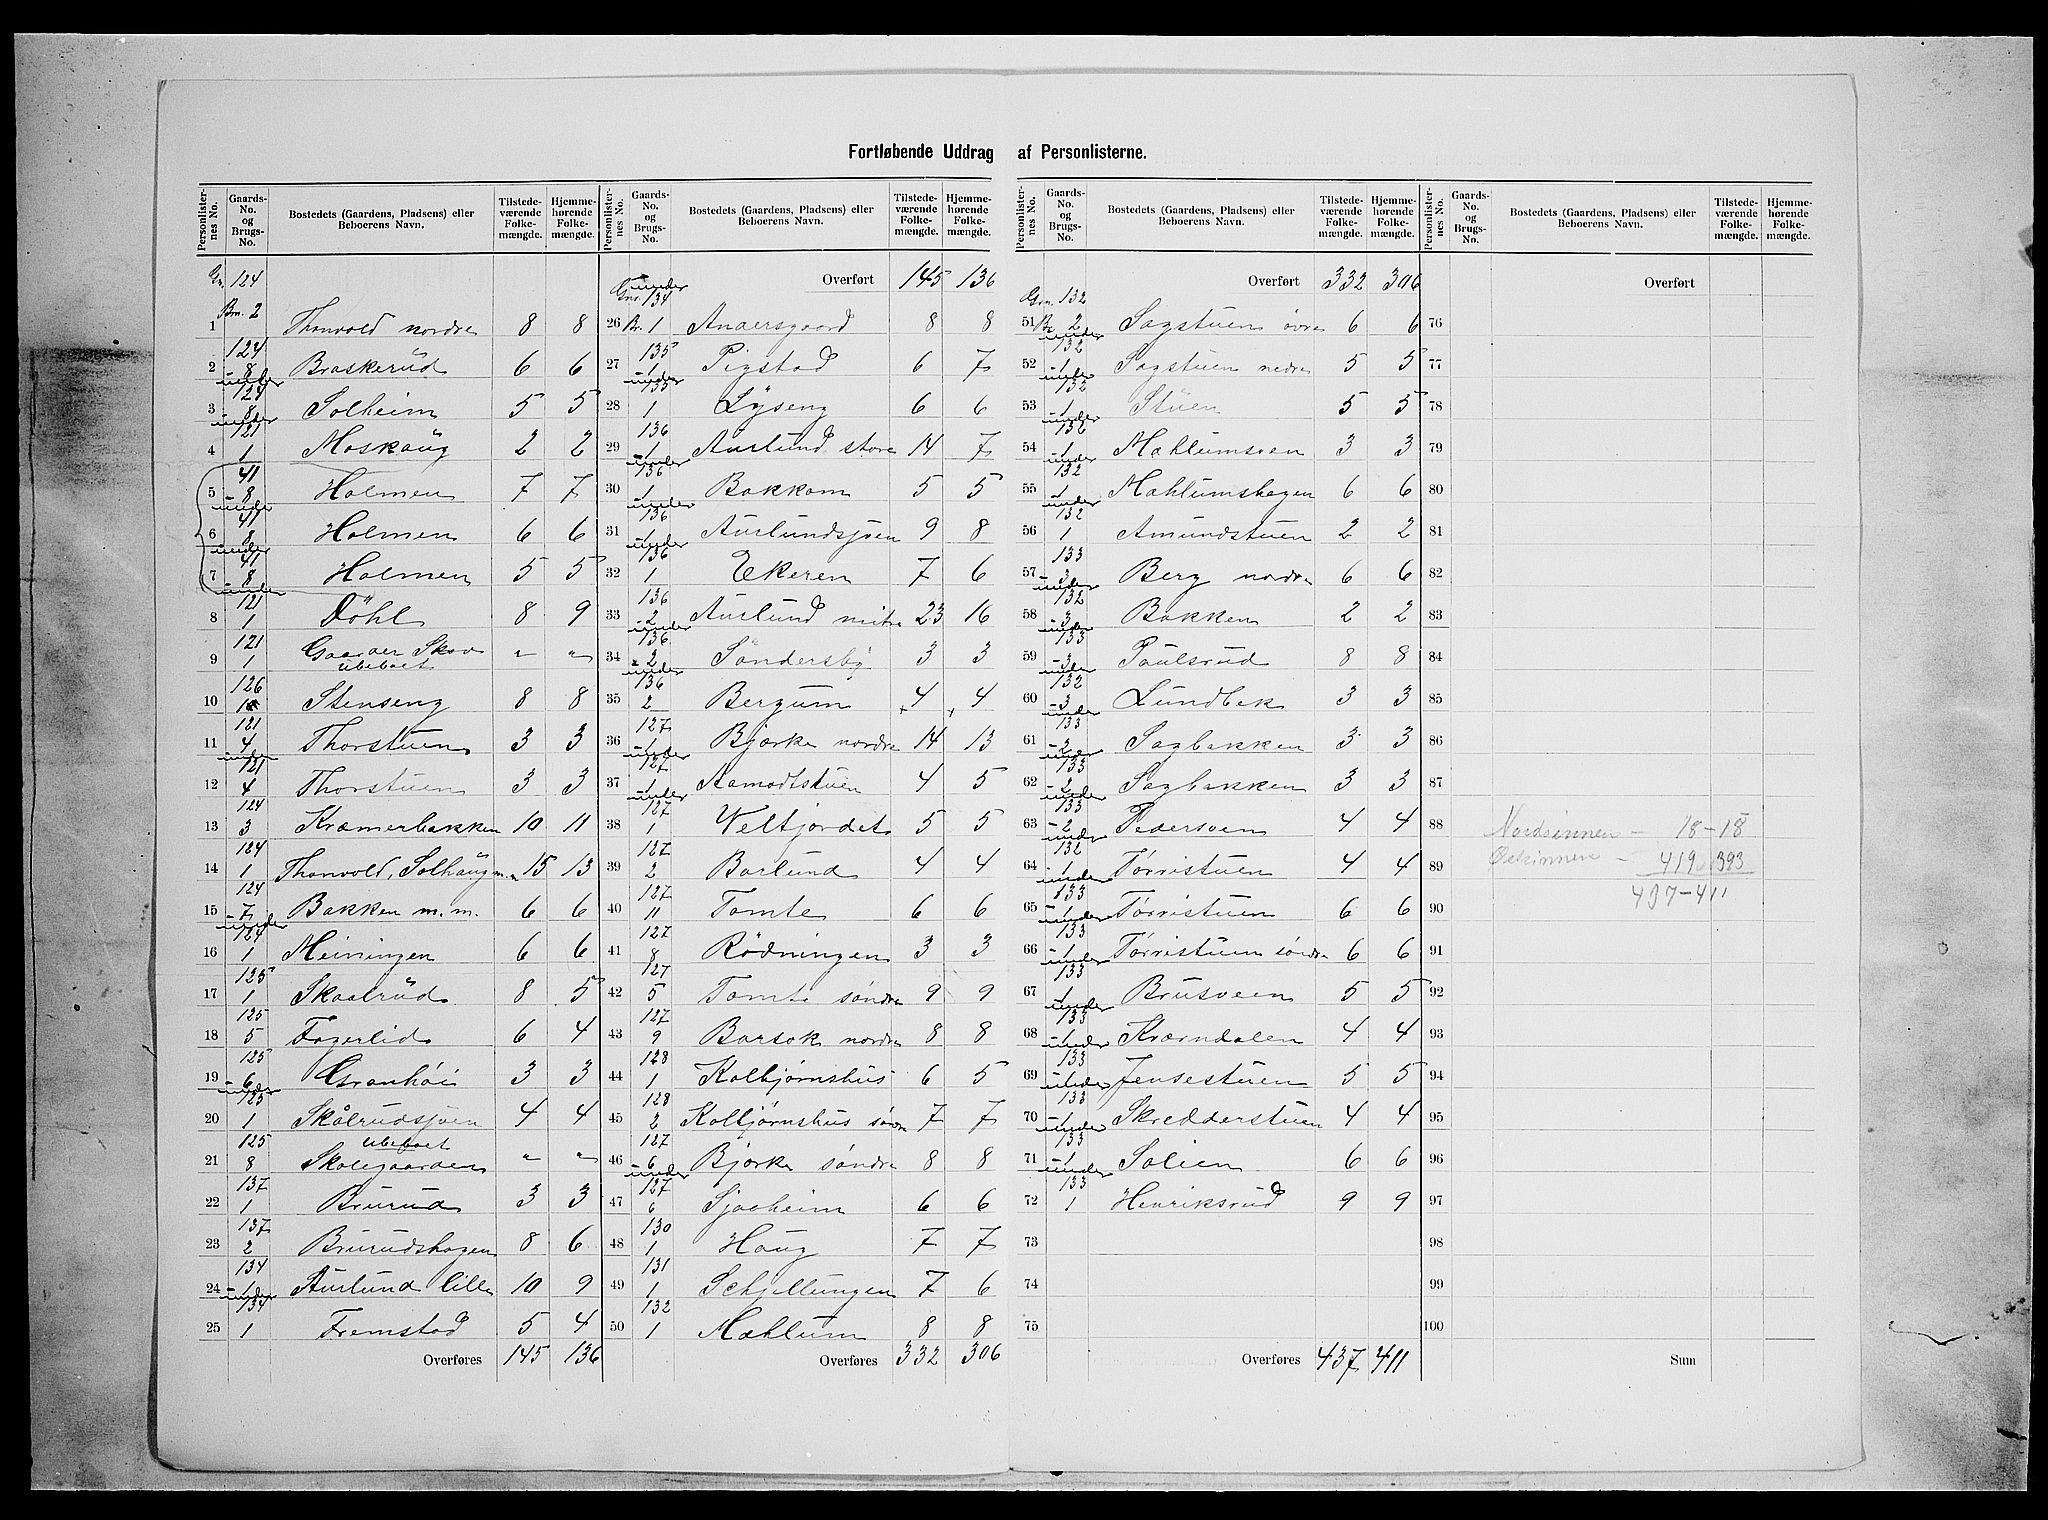 Fortløbende Uddrag af Personlisterne.
Personlisternes No. Gaards-No. og Brugs-No. Bostedets (Gaardens, Pladsens) eller Beboerens Navn. Tilstedeværende Folkemængde. Hjemmehørende Folkemængde.
Gn. 124
Bn. 2
1 Thonvold nordre 8 8
2 124 8 Braskerud 6 6
3 under 124 8 Solheim 5 5
4 under 121 1 Moskaug 2 2
5 41 8 Holmen 7 7
6 under 41 8 Holmen 6 6
7 under 41 8 Holmen 5 5
8 under 121 1 Döhl 8 9
9 121 1 Gaarder Skov ubeboet " "
10 126 1 Stenseng 8 8
11 121 4 Thorstuen 3 3
12 under 121 4 Thorstuen 3 3
13 124 3 Kræmerbakken 10 11
14 124 1 Thonvold, Solhaugen 15 13
15 124 7 Bakken m.m. 6 6
16 under 124 1 Meiningen 6 6
17 125 1 Skaalrud 8 5
18 125 5 Fagerlid 6 4
19 125 6 Granhöi 3 3
20 under 125 1 Skålrudsjven 4 4
21 125 8 Skolegaarden ubeboet " "
22 137 1 Brurud 3 3
23 137 2 Brurudshagen 8 6
24 134 1 Aurlund lille 10 9
25 under 134 1 Fremstad 5 4
Overføres 145 136
Overført 145 136
under Gnr. 134
26 Br. 1 Andersgaard 8 8
27 135 1 Pigstad 6 7
28 under 135 1 Lyseng 6 6
29 136 1 Aurlund store 14 7
30 under 136 1 Bakkom 5 5
31 under 136 1 Aurlundsjven 9 8
32 under 136 1 Ekeren 7 6
33 136 2 Aurlund mitre 23 16
34 under 136 2 Söndersby 3 3
35 under 136 2 Bergum 4 4
36 127 1 Bjørke nordre 14 13
37 under 127 1 Aamodtstuen 4 5
38 under 127 1 Veltjordet 5 5
39 127 2 Borlund 4 4
40 127 11 Tomte 6 6
41 127 8 Rödningen 3 3
42 127 5 Tomte søndre 9 9
43 127 9 Barsok nordre 8 8
44 128 1 Kolbjørnshus 6 5
45 128 2 Kolbjørnshus søndre 7 7
46 127 6 Bjørke søndre 8 8
47 under 127 6 Sjøheim 6 6
48 130 1 Haug 7 7
49 131 1 Schjellungen 7 6
50 132 1 Mæhlum 8 8
Overføres 332 306
Overført 332 306
Grn. 132
51 Br. 2 Sagstuen øvre 6 6
52 under 132 1 Sagstuen nedre 5 5
53 under 132 1 Stuen 5 5
54 under 132 1 Mæhlumsven 3 3
55 under 132 1 Mæhlumshagen 6 6
56 under 132 1 Amundstuen 2 2
57 133 3 Berg nordre 6 6
58 under 132 3 Bakken 2 2
59 under 133 3 Paulsrud 8 8
60 under 132 3 Lundbek 3 3
61 under 133 2 Sagbakken 3 3
62 under 133 2 Sagbakken 3 3
63 under 133 2 Pedersven 4 4
64 under 132 1 Tørristuen 4 4
65 under 133 1 Tørristuen 6 6
66 under 133 1 Tørristuen søndre 6 6
67 under 133 1 Brusveen 5 5
68 under 133 1 Kværndalen 4 4
69 under 133 1 Jensestuen 5 5
70 under 133 1 Skredderstuen 4 4
71 under 133 1 Solien 6 6
72 under 133 1 Henriksrud 9 9
73
74
75
Overføres 437 411
Overført
76
77
78
79
80
81
82
83
84
85
86
87
88 Nordsinnen - 18-18
89 Østsinnen - 419 393
90 437-411
91
92
93
94
95
96
97
98
99
100
Sum